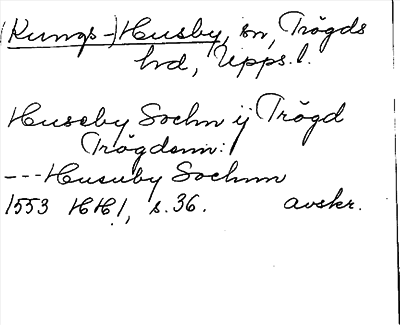 (Kungs-)Husby, sn, Trögds
hd, Upps. l.
Huseby Sochn ij Trögd
Trögdsmin:
---Husuby Sochnn
1553 HH!, s. 36. avskr.